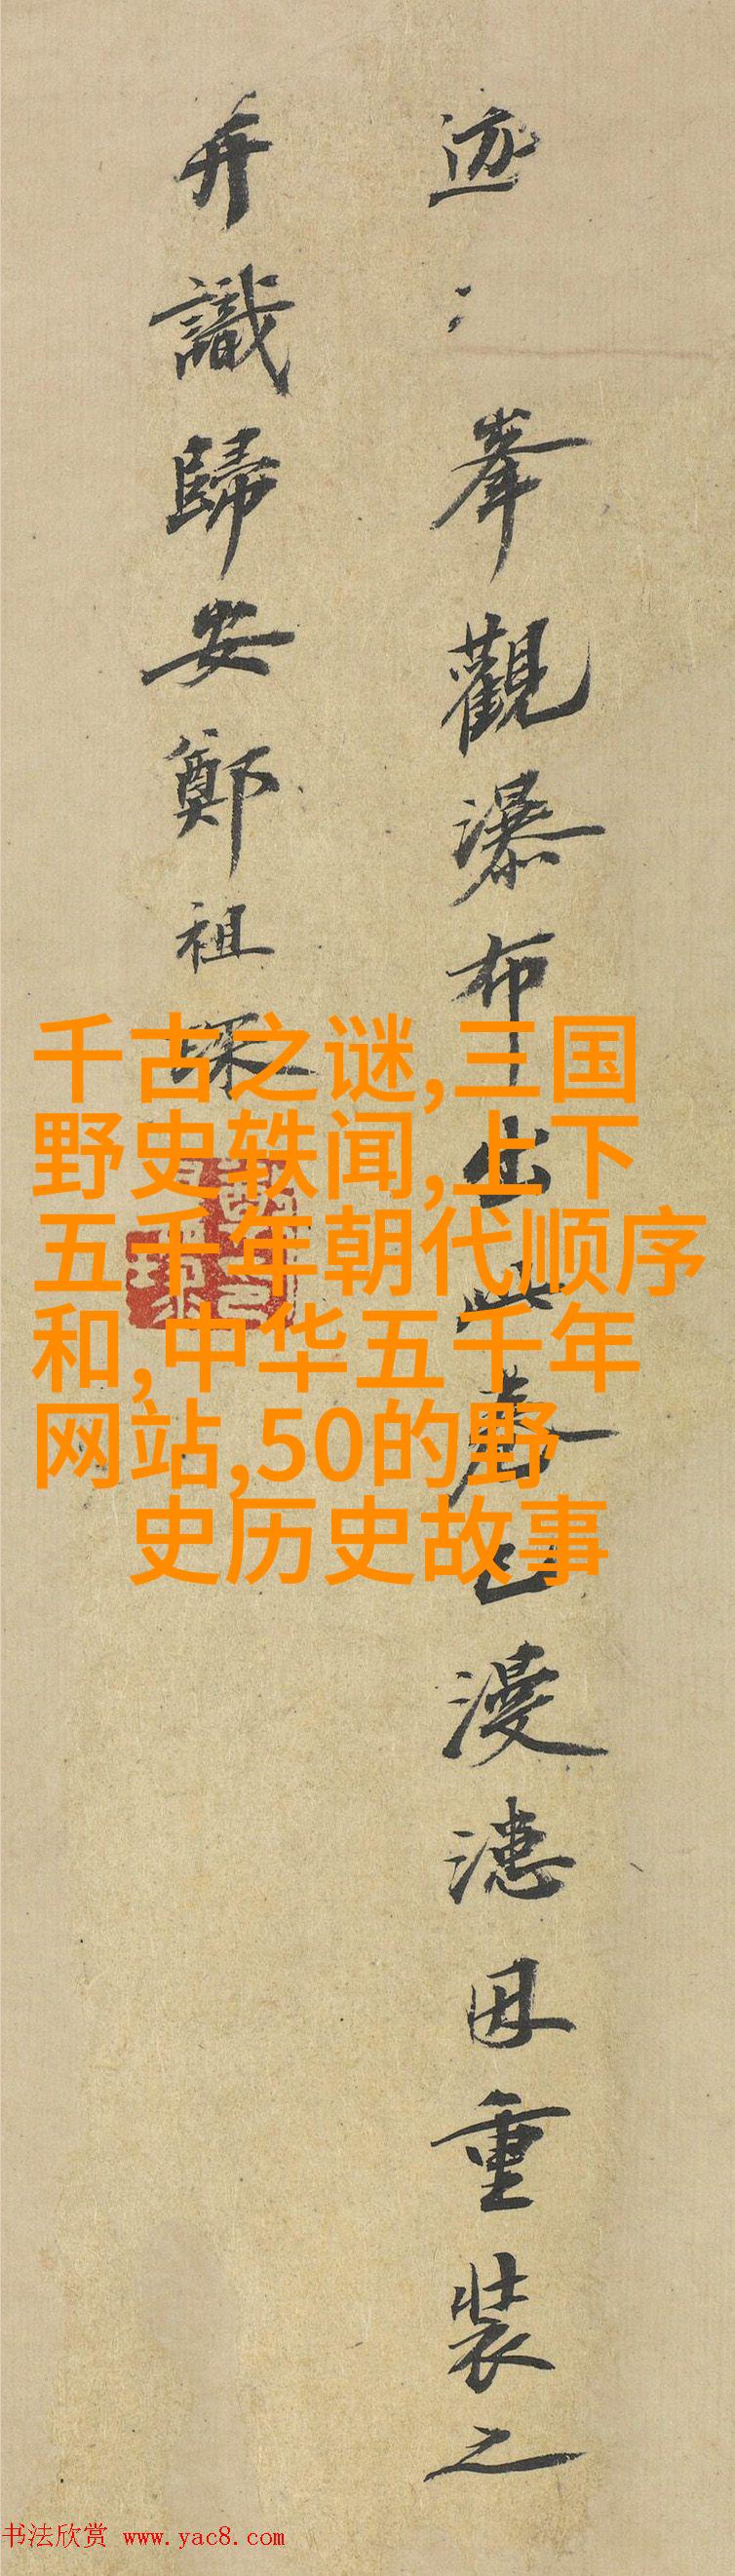 迹〻峯觀瀑布出此卷已漫漶因重裝之
并識歸安鄭祖琛
千古之谜,三国
野史轶闻,上下
五千年朝代顺序
和,中华五千年
网站,50的野
史历史故事
书法欣赏 www.yac8.com